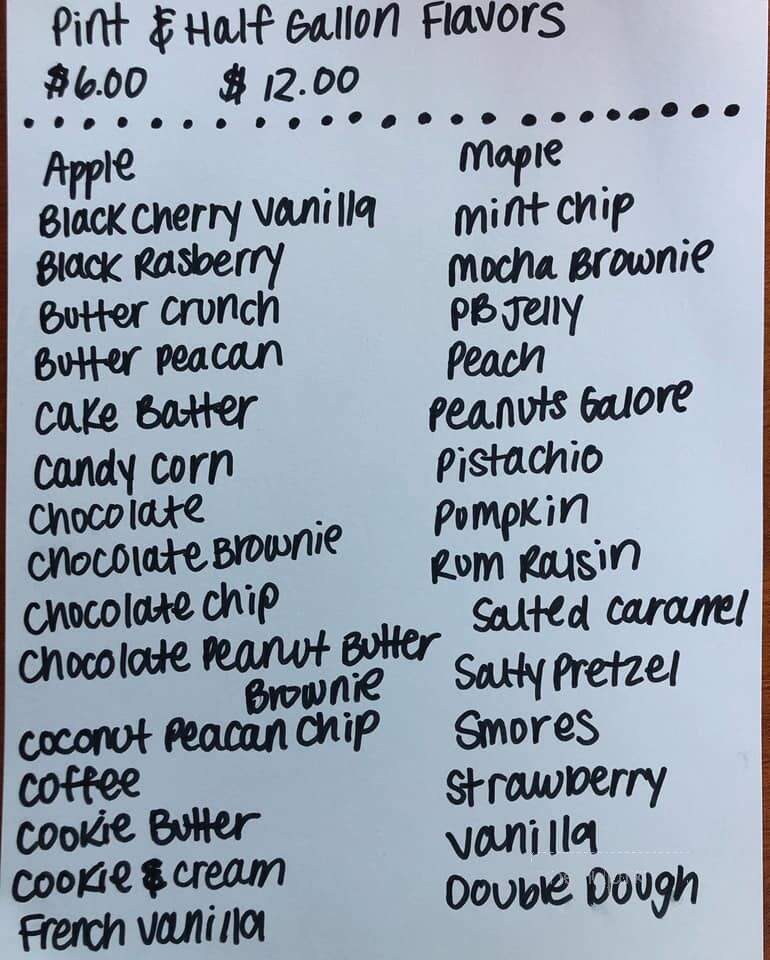 Pint & Half Gallon Flavors
$6.00 $12.00
Apple
Black Cherry Vanilla
Black Rasberry
Butter Crunch
Butter Peacan
Cake Batter
Candy Corn
Chocolate
Chocolate Brownie
Chocolate Chip
Chocolate Peanut Butter
Brownie
Coconut Peacan Chip
Coffee
Cookie Butter
Cookie & Cream
French Vanilla
Maple
Mint Chip
Mocha Brownie
PB Jelly
Peach
Peanuts Galore
Pistachio
Pumpkin
Rum Raisin
Salted Caramel
Salty Pretzel
Smores
Strawberry
Vanilla
Double Dough